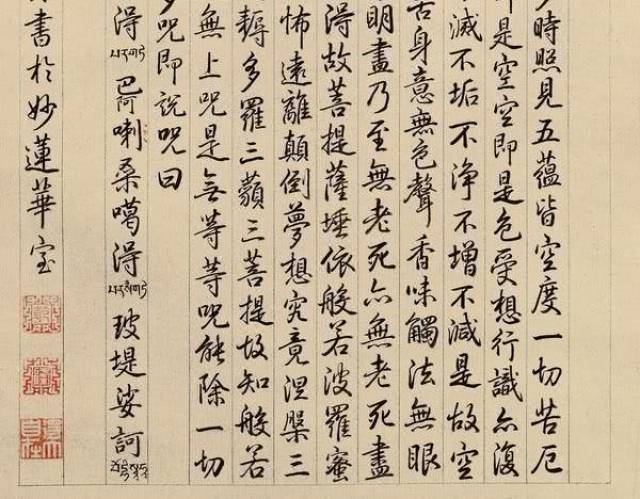 時照見五蘊皆空度一切苦厄
即是空空即是色受想行識亦復
不滅不垢不淨不增不減是故空
舌身意無色聲香味觸法無眼
明盡乃至無老死亦無老死盡
得故菩提薩埵依般若波羅蜜
怖遠離顛倒夢想究竟涅槃三
耨多羅三藐三菩提故知般若
無上咒是無等等咒能除一切
多咒即說咒曰
得巴阿喇桑噶得玻堤娑訶
書於妙蓮華室